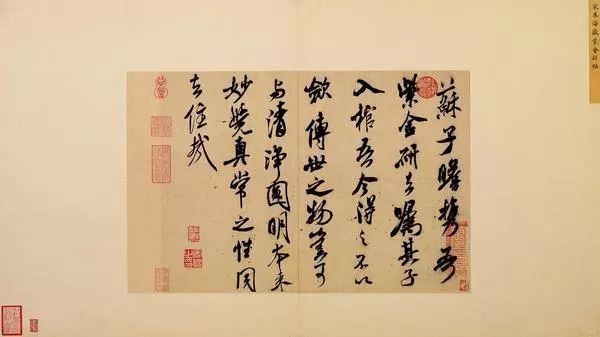 宋米海嶽紫金研帖
蘇子瞻携吾
紫金研去嘱其子
入棺吾今得之不以
斂傳世之物豈可
与清淨圓明本来
妙覺真常之性同
去住哉